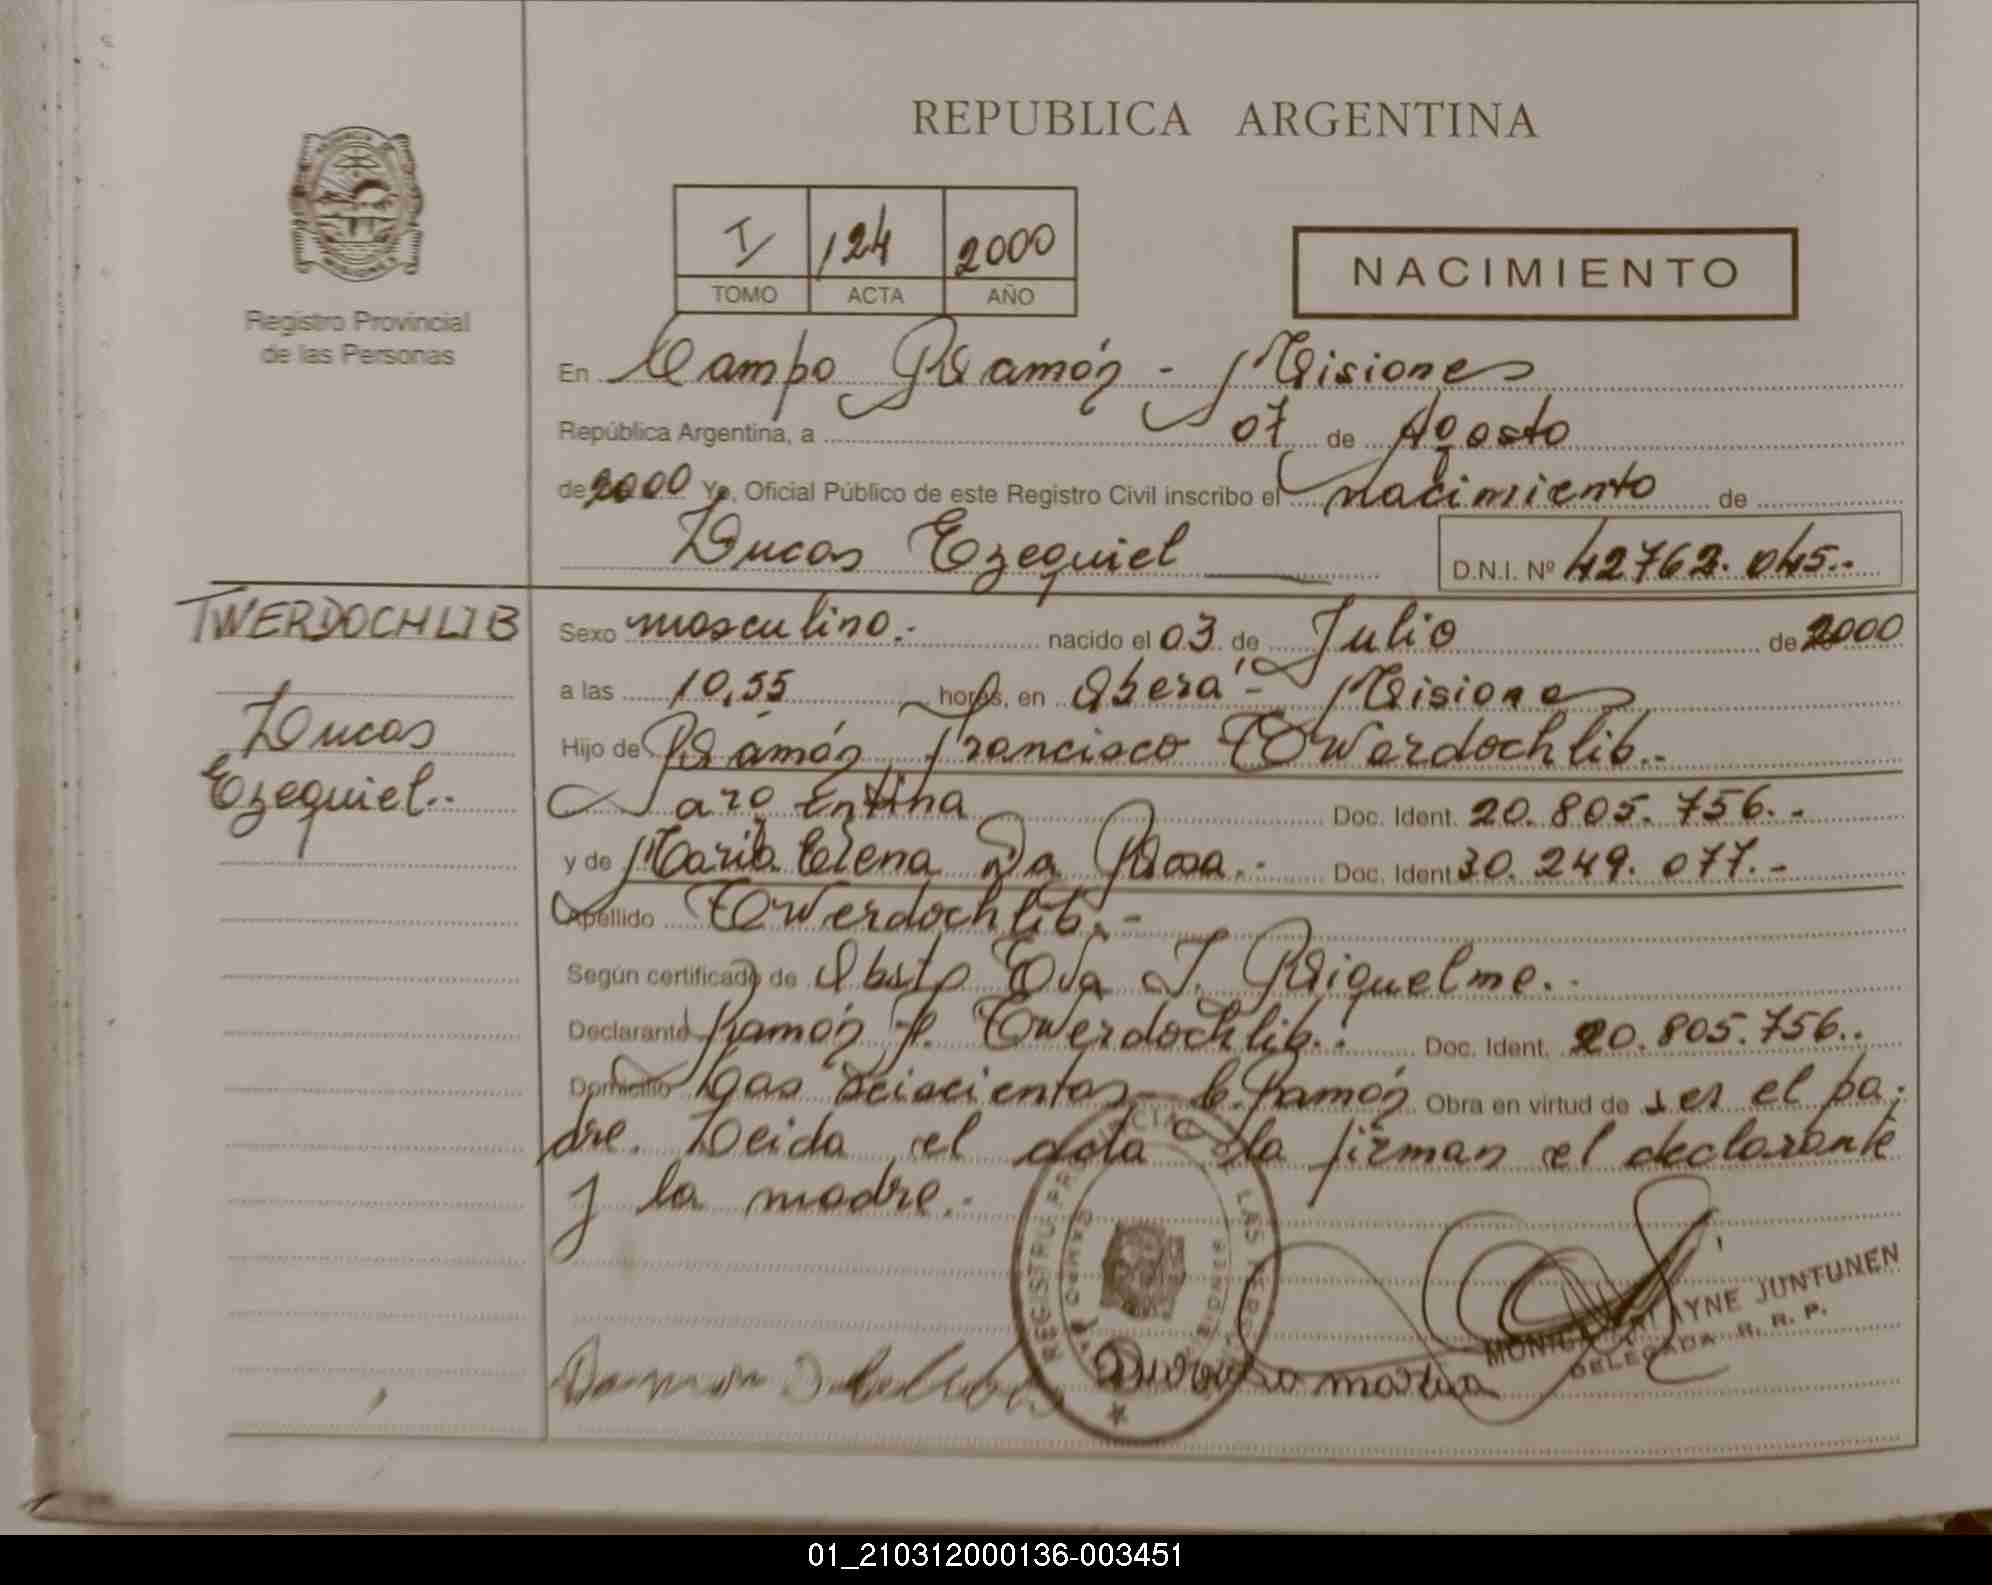 REPUBLICA ARGENTINA
Registro Provincial
de las Personas
I 124 2000
TOMO ACTA AÑO
NACIMIENTO
En Campo Ramón - Misiones
República Argentina, a 07 de Agosto
de 2000 Yo, Oficial Público de este Registro Civil inscribo el nacimiento de
Lucas Ezequiel D.N.I. Nº 42762.045.-
TWERDOCHLIB
Lucas
Ezequiel.-
Sexo masculino.- nacido el 03 de Julio de 2000
a las 10,55 horas, en Oberá - Misiones
Hijo de Ramón Francisco Twerdochlib.-
argentina Doc. Ident. 20.805.756.-
y de María Elena Da Rosa.- Doc. Ident 30.249.077.-
Apellido Twerdochlib.-
Según certificado de Obstp Eva J. Riquelme.-
Declarante Ramón F. Twerdochlib.- Doc. Ident. 20.805.756.-
Domicilio Las Seiscientas - C. Ramón Obra en virtud de ser el pa-
dre. Leida el acta la firman el declarante
y la madre.-
REGISTRO LAS
MISIONES
JUNTUNEN
DELEGADA R. R. P.
maria
01_210312000136-003451